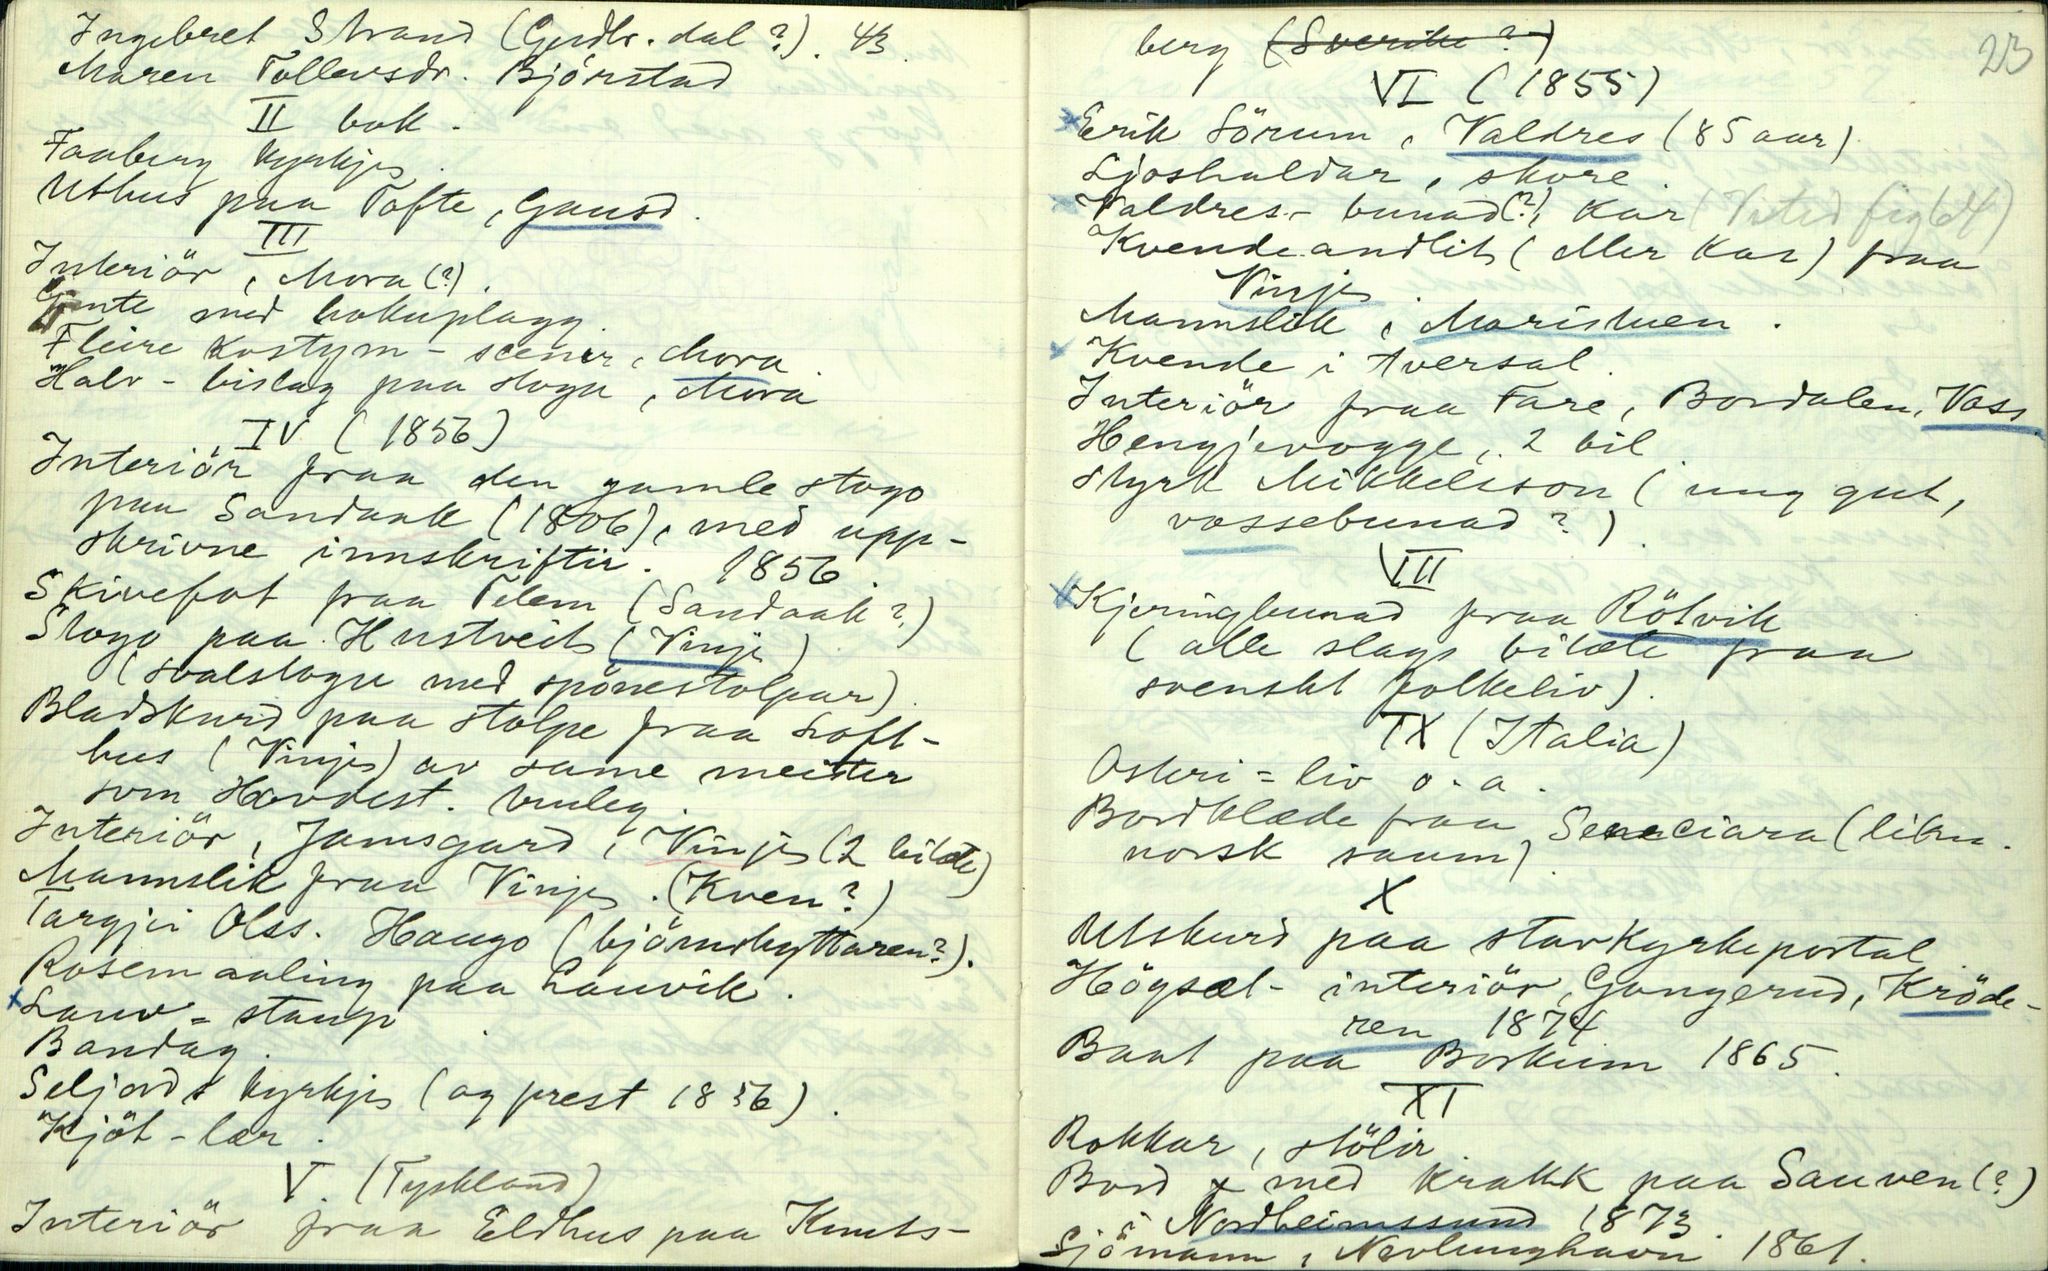 Ingebret Strand (Gudbr. dal?). 43
Maren Tollevsdr. Bjørstad
II bok.
Faaberg kyrkje.
Uthus paa Tofte, Gausd.
III
Interiör, Mora (?).
Gjente med hokuplagg.
Fleire kostym-scener, Mora
Halv-bislag paa stogu, Mora
IV (1856)
Interiör fraa den gamle stogo
paa Sandaak (1806), med upp-
skrivne innskrifter. 1856.
Skivefot fraa Telem (Sandaak?)
Stogo paa Hustveit (Vinje)
(svalstogu med spónestolpar).
Bladskurd paa stolpe fraa Loft-
hus (Vinje) av same meister
som Hovdest. truleg.
Interiör, Jamsgard, Vinje (2 bilæte)
Mannslik fraa Vinje. (Kven?)
Targjei Olss. Haugo (björnskyttaren?).
Rosemaaling paa Lauvik.
x Lauv-staup
Bandag.
Seljords kyrkje (og prest 1856).
Kjöt-lær.
V. (Tyskland)
Interiör fraa Eldhus paa Knuts-
23
berg (Sverike?)
VI (1855)
x Erik Sörum, Valdres (85 aar).
Ljoshaldar, skore.
Valdres-bunad (?), Kar (Vited fig 64)
Kvende andlit (eller Kar) fraa
Vinje
Mannslik, Maristuen.
Kvende i tversal.
Interiör fraa Fare, Bordalen, Voss
Hengjevogge, 2 bil.
Styrk Mikkelsson (ung gut,
vossebunad?).
VII
x Kjeringbunad fraa Rötvik
(alle slags bilæte fraa
svenskt folkeliv).
IX (Italia)
Osteri-liv o. a.
Bordklæde fraa Senciara (likn.
norsk saum)
X
Utskurd paa stavkyrkeportal
Högsæl-interiör, Gungerud, Kröde-
ren 1874
Baat paa Borkum 1865.
XI
Rokkar, stólar
Bord x med krakk paa Sauven (?)
i Nordheimssund 1873.
Sjömann, Nevlunghavn 1861.